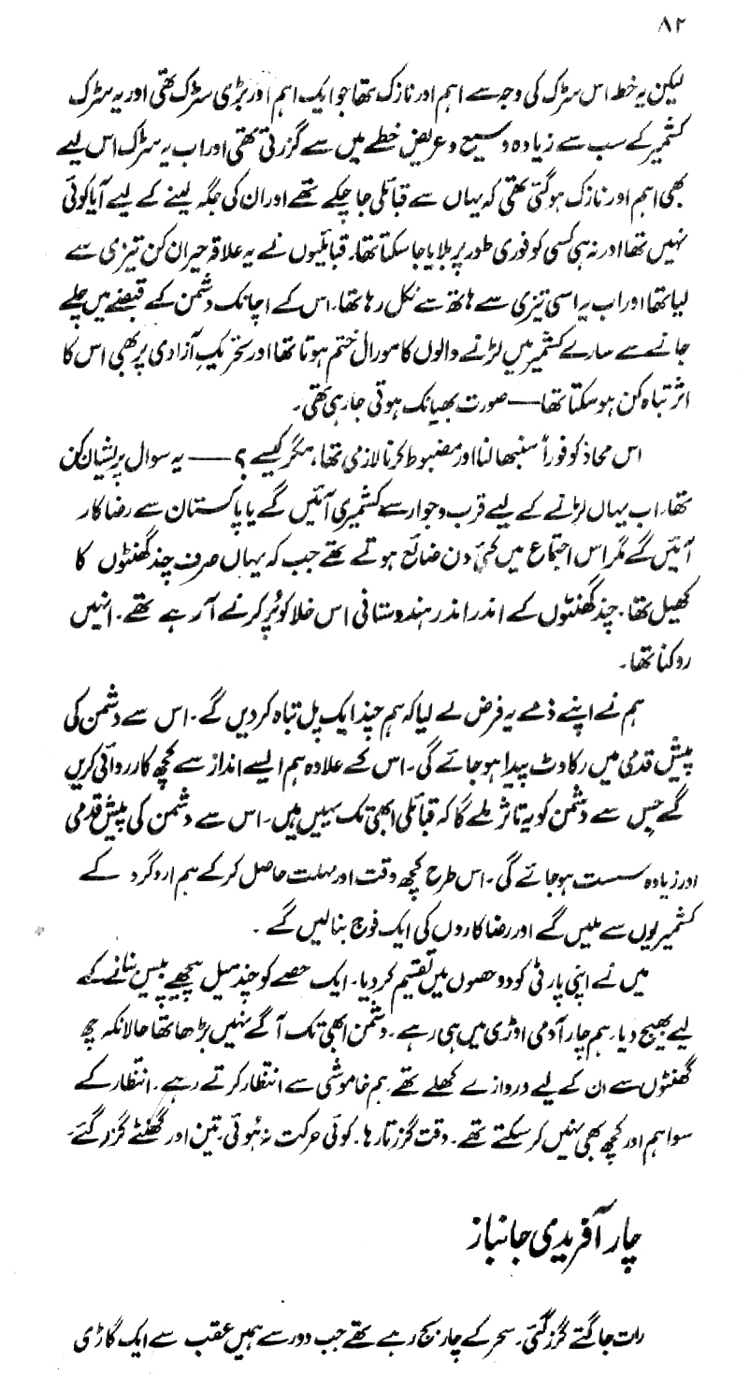 ۸۲
لیکن یہ خطہ اس سڑک کی وجہ سے اہم اور نازک تھا جو ایک اہم اور بڑی سڑک تھی اور یہ سڑک
کشمیر کے سب سے زیادہ وسیع و عریض خطے میں سے گزرتی تھی اور اب یہ سڑک اس لیے
بھی اہم اور نازک ہو گئی تھی کہ یہاں سے قبائلی جا چکے تھے اور ان کی جگہ لینے کے لیے آیا کوئی
نہیں تھا اور نہ ہی کسی کو فوری طور پر بلایا جا سکتا تھا۔ قبائلیوں نے یہ علاقہ حیران کن تیزی سے
لیا تھا اور اب یہ اسی تیزی سے ہاتھ سے نکل رہا تھا۔ اس کے اچانک دشمن کے قبضے میں چلے
جانے سے سارے کشمیر میں لڑنے والوں کا مورال ختم ہوتا تھا اور تحریکِ آزادی پر بھی اس کا
اثر تباہ کن ہو سکتا تھا — صورت بھیانک ہوتی جا رہی تھی۔
اس محاذ کو فوراً سنبھالنا اور مضبوط کرنا لازمی تھا، مگر کیسے ؟ — یہ سوال پریشان کن
تھا۔ اب یہاں لڑنے کے لیے قرب و جوار سے کشمیری آئیں گے یا پاکستان سے رضا کار
آئیں گے مگر اس اجتماع میں کئی دن ضائع ہوتے تھے جب کہ یہاں صرف چند گھنٹوں کا
کھیل تھا۔ چند گھنٹوں کے اندر اندر ہندوستانی اس خلا کو پُر کرنے آ رہے تھے۔ انہیں
روکنا تھا۔
ہم نے اپنے ذمے یہ فرض لے لیا کہ ہم چند ایک پل تباہ کر دیں گے۔ اس سے دشمن کی
پیش قدمی میں رکاوٹ پیدا ہو جائے گی۔ اس کے علاوہ ہم ایسے انداز سے کچھ کارروائی کریں
گے جس سے دشمن کو یہ تاثر ملے گا کہ قبائلی ابھی تک یہیں ہیں۔ اس سے دشمن کی پیش قدمی
اور زیادہ سست ہو جائے گی۔ اس طرح کچھ وقت اور مہلت حاصل کر کے ہم ارد گرد کے
کشمیریوں سے ملیں گے اور رضا کاروں کی ایک فوج بنا لیں گے ۔
میں نے اپنی پارٹی کو دو حصوں میں تقسیم کر دیا۔ ایک حصے کو چند میل پیچھے بیس بنانے کے
لیے بھیج دیا۔ ہم چار آدمی اوڑی میں ہی رہے۔ دشمن ابھی تک آگے نہیں بڑھا تھا حالانکہ چھ
گھنٹوں سے ان کے لیے دروازے کھلے تھے۔ ہم خاموشی سے انتظار کرتے رہے۔ انتظار کے
سوا ہم اور کچھ بھی نہیں کر سکتے تھے۔ وقت گزرتا رہا۔ کوئی حرکت نہ ہُوئی۔ تین اور گھنٹے گزر گئے۔
چار آفریدی جانباز
رات جاگتے گزر گئی۔ سحر کے چار بج رہے تھے جب دور سے ہمیں عقب سے ایک گاڑی